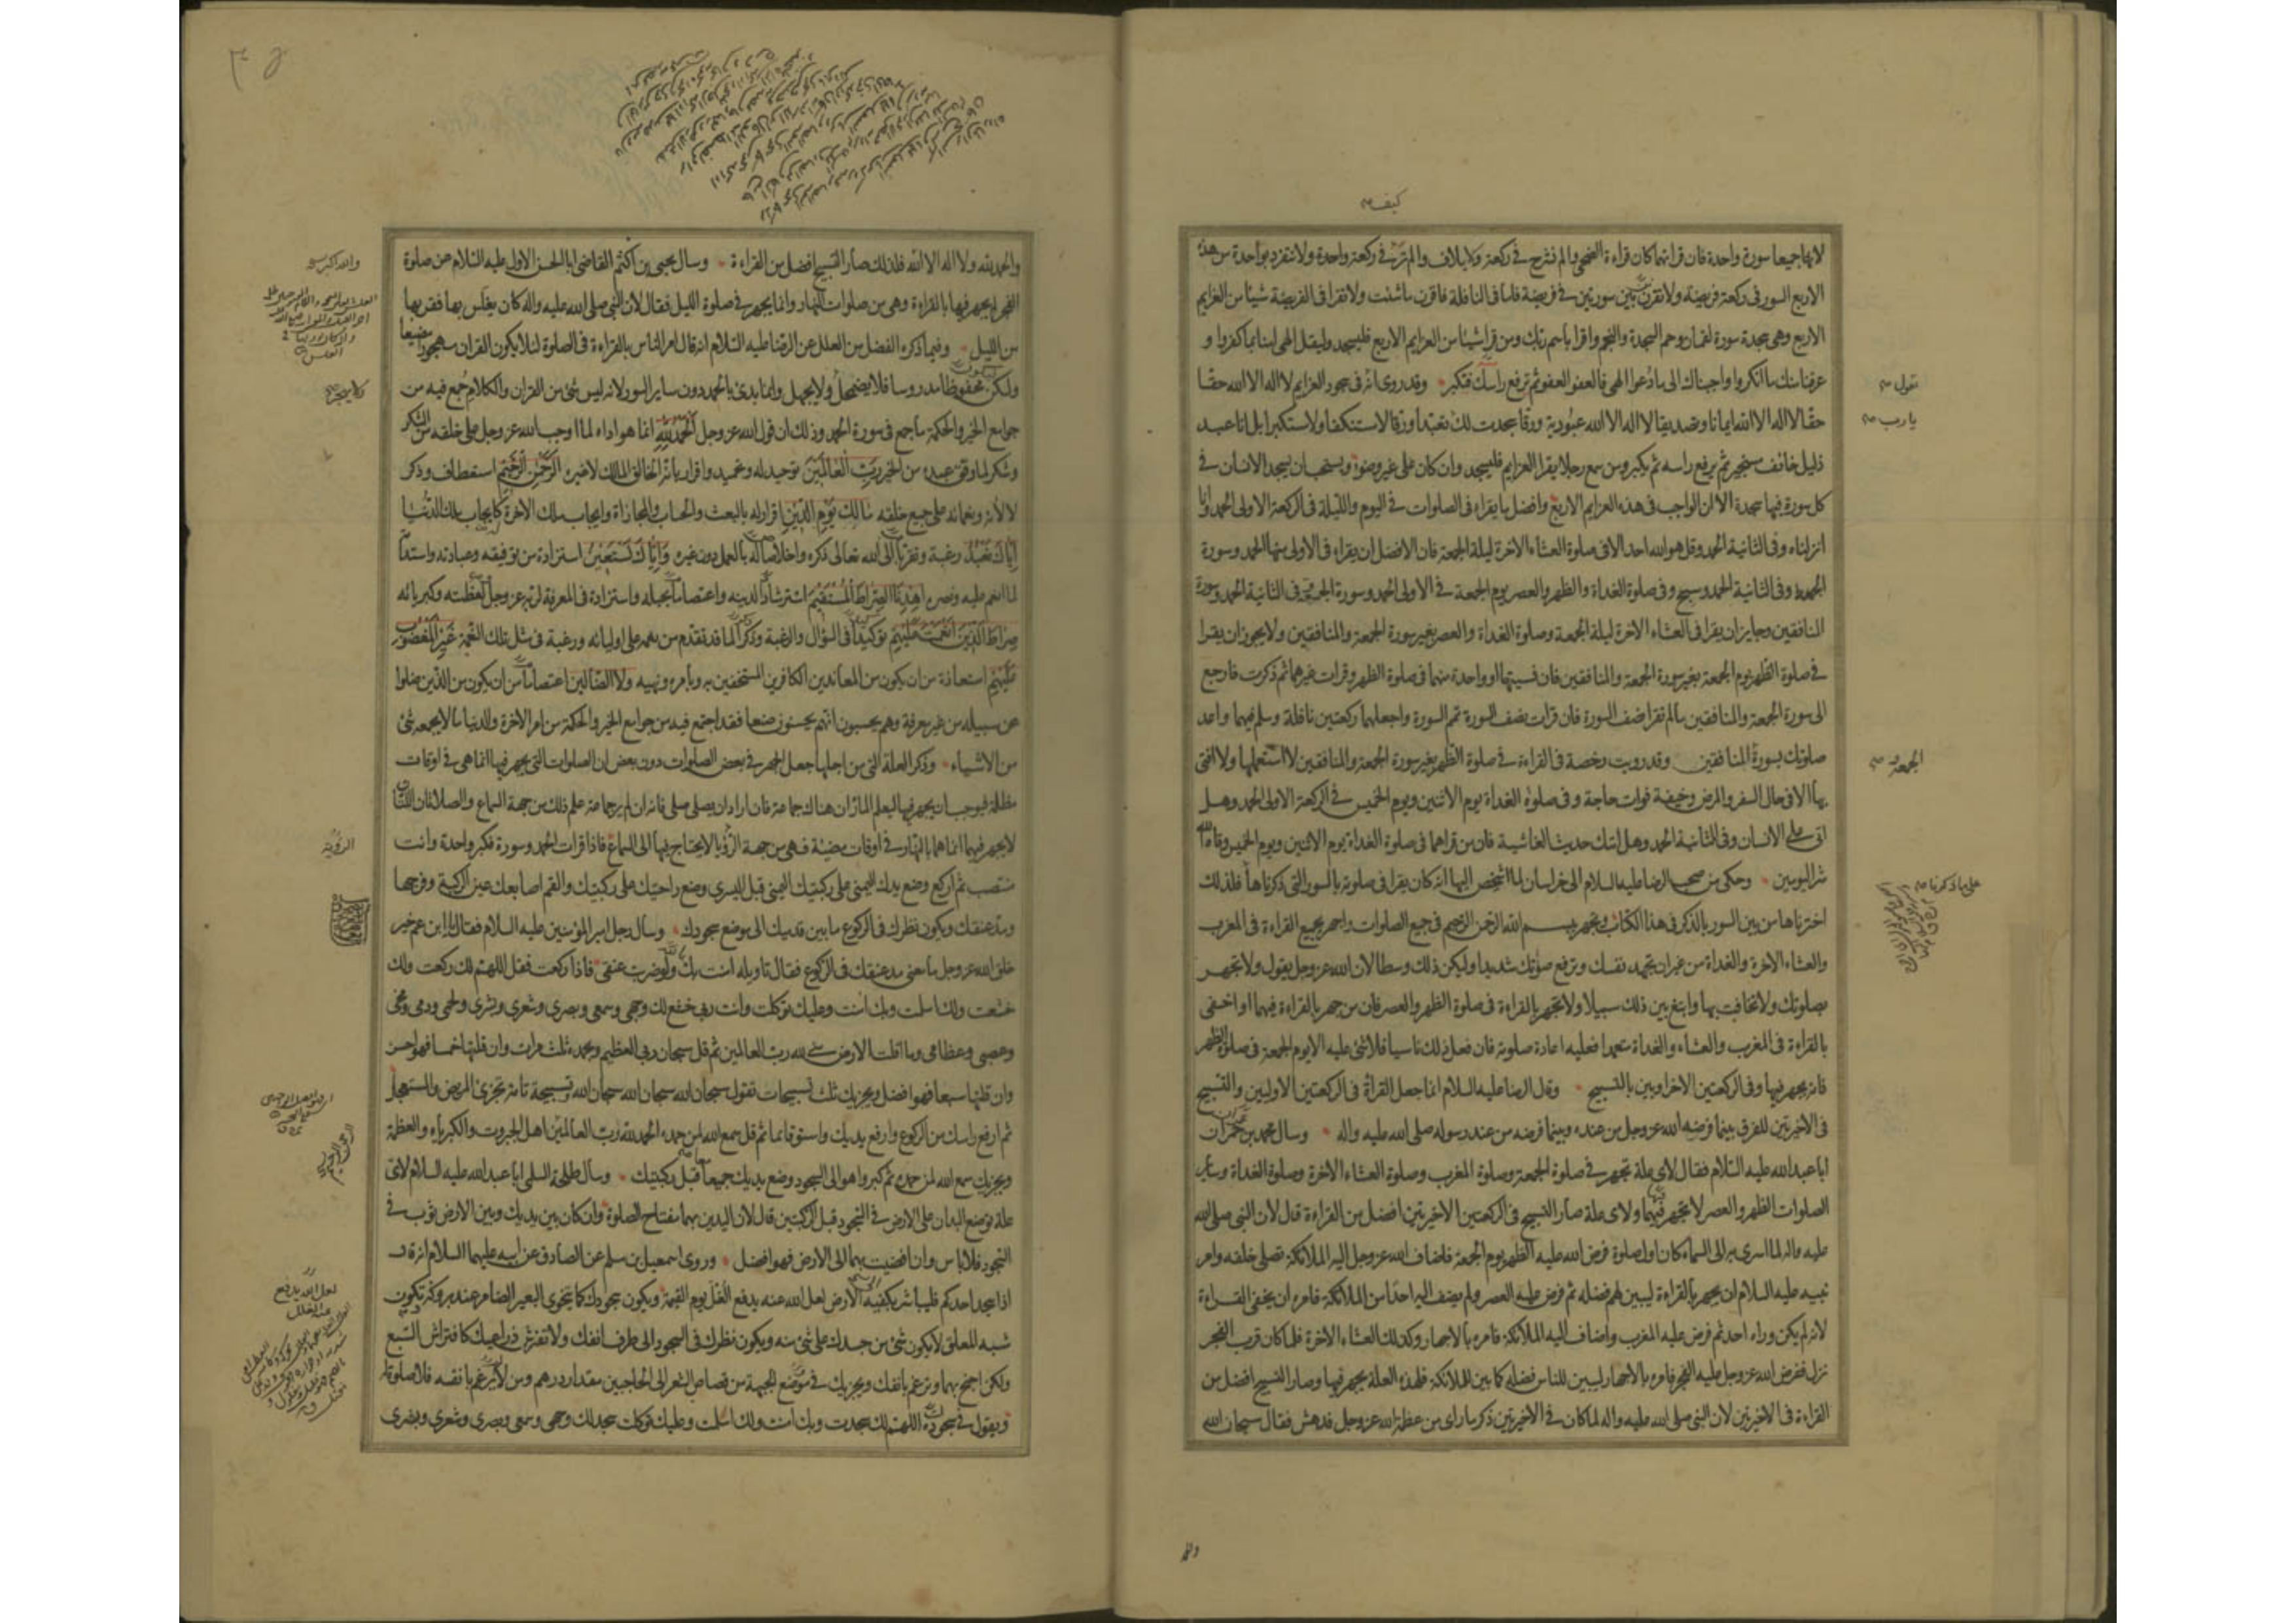 كيف
لانهما جميعا سورة واحدة فان قراتهما كان قراءة الضحى والم نشرح في ركعة ولايلاف والم تر في ركعة واحدة ولا تنفرد بواحدة من هذه
الاربع السور في ركعة فريضة ولا تقرن بين سورتين في فريضة فاما في النافلة فاقرن ما شئت ولا تقرا في الفريضة شيئا من العزايم
الاربع وهي سجدة سورة لقمان وحم السجدة والنجم واقرا باسم ربك ومن قرا شيئا من العزايم الاربع فليسجد وليقل الهي امنا بما كفروا و
عرفنا منك ما انكروا واجبناك الى ما دعوا الهي فالعفو العفو ثم ترفع راسك فتكبر وقد روي انه في سجود العزايم لا اله الا الله حقا
حقا لا اله الا الله ايمانا وتصديقا لا اله الا الله عبودية ورقا سجدت لك تعبدا ورقا لا مستنكفا ولا مستكبرا بل انا عبد
ذليل خائف مستجير ثم يرفع راسه ثم يكبر ومن سمع رجلا يقرا العزايم فليسجد وان كان على غير وضوء ويستحب ان يسجد الانسان في
كل سورة فيها سجدة الا ان الواجب في هذه العزايم الاربع وافضل ما يقراء في الصلوات في اليوم والليلة في الركعة الاولى الحمد وانا
انزلناه وفي الثانية الحمد وقل هو الله احد الا في صلوة العشاء الاخرة ليلة الجمعة فان الافضل ان يقراء في الاولى منها الحمد وسورة
الجمعة وفي الثانية الحمد وسبح وفي صلوة الغداة والظهر والعصر يوم الجمعة في الاولى الحمد وسورة الجمعة وفي الثانية الحمد وسورة
المنافقين وجايز ان يقرا في العشاء الاخرة ليلة الجمعة وصلوة الغداة والعصر بغير سورة الجمعة والمنافقين ولا يجوز ان يقرا
في صلوة الظهر يوم الجمعة بغير سورة الجمعة والمنافقين فان نسيتهما او واحدة منهما في صلوة الظهر وقرات غيرهما ثم ذكرت فارجع
الى سورة الجمعة والمنافقين ما لم تقرا نصف السورة فان قرات نصف السورة تمم السورة واجعلهما ركعتين نافلة وسلم فيهما واعد
صلوتك بسورة المنافقين وقد رويت رخصة في القراءة في صلوة الظهر بغير سورة الجمعة والمنافقين لا استعملها ولا افتي
بها الا في حال السفر والمرض وخيفة فوات حاجة وفي صلوة الغداة يوم الاثنين ويوم الخميس في الركعة الاولى الحمد وهل
اتى على الانسان وفي الثانية الحمد وهل اتيك حديث الغاشية فان من قراهما في صلوة الغداة يوم الاثنين ويوم الخميس وقاه الله
شر اليومين وحكى من صحب الرضا عليه السلام الى خراسان لما اشخص اليها انه كان يقرا في صلوته بالسور التي ذكرناها فلذلك
اخترناها من بين السور بالذكر في هذا الكتاب وتجهر ببسم الله الرحمن الرحيم في جميع الصلوات واجهر بجميع القراءة في المغرب
والعشاء الاخرة والغداة من غير ان تجهد نفسك وترفع صوتك شديدا وليكن ذلك وسطا لان الله عز وجل يقول ولا تجهر
بصلوتك ولا تخافت بها وابتغ بين ذلك سبيلا ولا تجهر بالقراءة في صلوة الظهر والعصر فان من جهر بالقراءة فيهما او اخفى
بالقراءة في المغرب والعشاء والغداة متعمدا فعليه اعادة صلوته فان فعل ذلك ناسيا فلا شئ عليه الا يوم الجمعة في صلوة الظهر
فانه يجهر فيها وفي الركعتين الاخراوين بالتسبيح وقال الرضا عليه السلام انما جعل القراءة في الركعتين الاوليين والتسبيح
في الاخيرتين للفرق بينما فرضه الله عز وجل من عنده وبينما فرضه من عند رسوله صلى الله عليه واله وسال محمد بن حمران
ابا عبد الله عليه السلام فقال لاي علة تجهر في صلوة الجمعة وصلوة المغرب وصلوة العشاء الاخرة وصلوة الغداة وساير
الصلوات الظهر والعصر لا تجهر فيهما ولاي علة صار التسبيح في الركعتين الاخيرتين افضل من القراءة قال لان النبي صلى الله
عليه واله لما اسرى به الى السماء كان اول صلوة فرض الله عليه الظهر يوم الجمعة فاضاف الله عز وجل اليه الملائكة تصلى خلفه وامر
نبيه عليه السلام ان يجهر بالقراءة ليبين لهم فضله ثم فرض عليه العصر ولم يضف اليه احدا من الملائكة فامره ان يخفى القراءة
لانه لم يكن وراءه احد ثم فرض عليه المغرب واضاف اليه الملائكة فامره بالاجهار وكذلك العشاء الاخرة فلما كان قرب الفجر
نزل ففرض الله عز وجل عليه الفجر فامره بالاجهار ليبين للناس فضله كما بين للملائكة فلهذه العلة يجهر فيها وصار التسبيح افضل من
القراءة في الاخيرتين لان النبي صلى الله عليه واله لما كان في الاخيرتين ذكر ما راى من عظمة الله عز وجل فدهش فقال سبحان الله
تقول
يا رب
الجمعة و
على ما ذكرنا
والحمد لله ولا اله الا الله فلذلك صار التسبيح افضل من القراءة وسال يحيى بن اكثم القاضي ابا الحسن الاول عليه السلام عن صلوة
الفجر لم يجهر فيها بالقراءة وهي من صلوات النهار وانما يجهر في صلوة الليل فقال لان النبي صلى الله عليه واله كان يغلس بها فقربها
من الليل وفيما ذكره الفضل من العلل عن الرضا عليه السلام انه قال امر الناس بالقراءة في الصلوة لئلا يكون القران مهجورا مضيعا
وليكون محفوظا مدروسا فلا يضمحل ولا يجهل وانما بدئ بالحمد دون ساير السور لانه ليس شئ من القران والكلام جمع فيه من
جوامع الخير والحكمة ما جمع في سورة الحمد وذلك ان قول الله عز وجل الحمد لله انما هو اداء لما اوجب الله عز وجل على خلقه من الشكر
وشكر لما وفق عبده من الخير رب العالمين توحيد له وتحميد واقرار بانه الخالق المالك لا غيره الرحمن الرحيم استعطاف وذكر
لالائه ونعمائه على جميع خلقه مالك يوم الدين اقرار له بالبعث والحساب والمجازاة وايجاب ملك الاخرة كايجاب ملك الدنيا
اياك نعبد رغبة وتقربا الى الله تعالى ذكره واخلاصا له بالعمل دون غيره واياك نستعين استزادة من توفيقه وعبادته واستدامة
لما انعم عليه ونصره اهدنا الصراط المستقيم استرشادا لدينه واعتصاما بحبله واستزادة في المعرفة لربه عز وجل لعظمته وكبريائه
صراط الذين انعمت عليهم توكيدا في السؤال والرغبة وذكرا لما قد تقدم من نعمه على اوليائه ورغبة في مثل تلك النعمة غير المغضوب
عليهم استعاذة من ان يكون من المعاندين الكافرين المستخفين به وبامره ونهيه ولا الضالين اعتصاما من ان يكون من الذين ضلوا
عن سبيله من غير معرفة وهم يحسبون انهم يحسنون صنعا فقد اجتمع فيه من جوامع الخير والحكمة من امر الاخرة والدنيا ما لا يجمعه شئ
من الاشياء وذكر العلة التي من اجلها جعل الجهر في بعض الصلوات دون بعض ان الصلوات التي يجهر فيها انما هي في اوقات
مظلمة فوجب ان يجهر فيها ليعلم المار ان هناك جماعة فان اراد ان يصلي صلى فانه ان لم ير جماعة علم ذلك من جهة السماع والصلاتان اللتان
لا يجهر فيهما انما هما بالنهار في اوقات مضيئة فهي من جهة الرؤيا لا يحتاج فيها الى السماع فاذا قرات الحمد وسورة فكبر واحدة وانت
منتصب ثم اركع وضع يدك اليمنى على ركبتك اليمنى قبل اليسرى وضع راحتيك على ركبتيك والقم اصابعك عين الركبة وفرجها
ومد عنقك ويكون نظرك في الركوع ما بين قدميك الى موضع سجودك وسال رجل امير المؤمنين عليه السلام فقال يا ابن عم خير
خلق الله عز وجل ما معنى مد عنقك في الركوع فقال تاويله امنت بك ولو ضربت عنقي فاذا ركعت فقل اللهم لك ركعت ولك
خشعت ولك اسلمت وبك امنت وعليك توكلت وانت ربي خشع لك وجهي وسمعي وبصري وشعري وبشري ولحمي ودمي ومخي
وعصبي وعظامي وما اقلت الارض مني لله رب العالمين ثم قل سبحان ربي العظيم وبحمده ثلث مرات وان قلتها خمسا فهو احسن
وان قلتها سبعا فهو افضل ويجزيك ثلث تسبيحات تقول سبحان الله سبحان الله سبحان الله وتسبيحة تامة تجزي المريض والمستعجل
ثم ارفع راسك من الركوع وارفع يديك واستو قائما ثم قل سمع الله لمن حمده الحمد لله رب العالمين اهل الجبروت والكبرياء والعظمة
ويجزيك سمع الله لمن حمده ثم كبر واهو الى السجود وضع يديك جميعا قبل ركبتيك وسال طلحة السلمي ابا عبد الله عليه السلام لاي
علة توضع اليدان على الارض في السجود قبل الركبتين قال لان اليدين بهما مفتاح الصلوة وان كان بين يديك وبين الارض ثوب في
السجود فلا باس وان افضيت بهما الى الارض فهو افضل وروى اسمعيل بن مسلم عن الصادق عن ابيه عليهما السلام انه قال
اذا سجد احدكم فليباشر بكفيه الارض لعل الله عنه يدفع الغل يوم القيمة ويكون سجودك كما يتخوى البعير الضامر عند بروكه تكون
شبه المعلق لا يكون شئ من جسدك على شئ منه ويكون نظرك في السجود الى طرف انفك ولا تفترش ذراعيك كافتراش السبع
ولكن اجنح بهما وترغم بانفك ويجزيك في موضع الجبهة من قصاص الشعر الى الحاجبين مقدار درهم ومن لا يرغم بانفه فلا صلوة له
وتقول في سجودك اللهم لك سجدت وبك امنت ولك اسلمت وعليك توكلت سجد لك وجهي وسمعي وبصري وشعري وبشري
والله اكبر
الرؤية
لعل الله يدفع
عنه الغلل